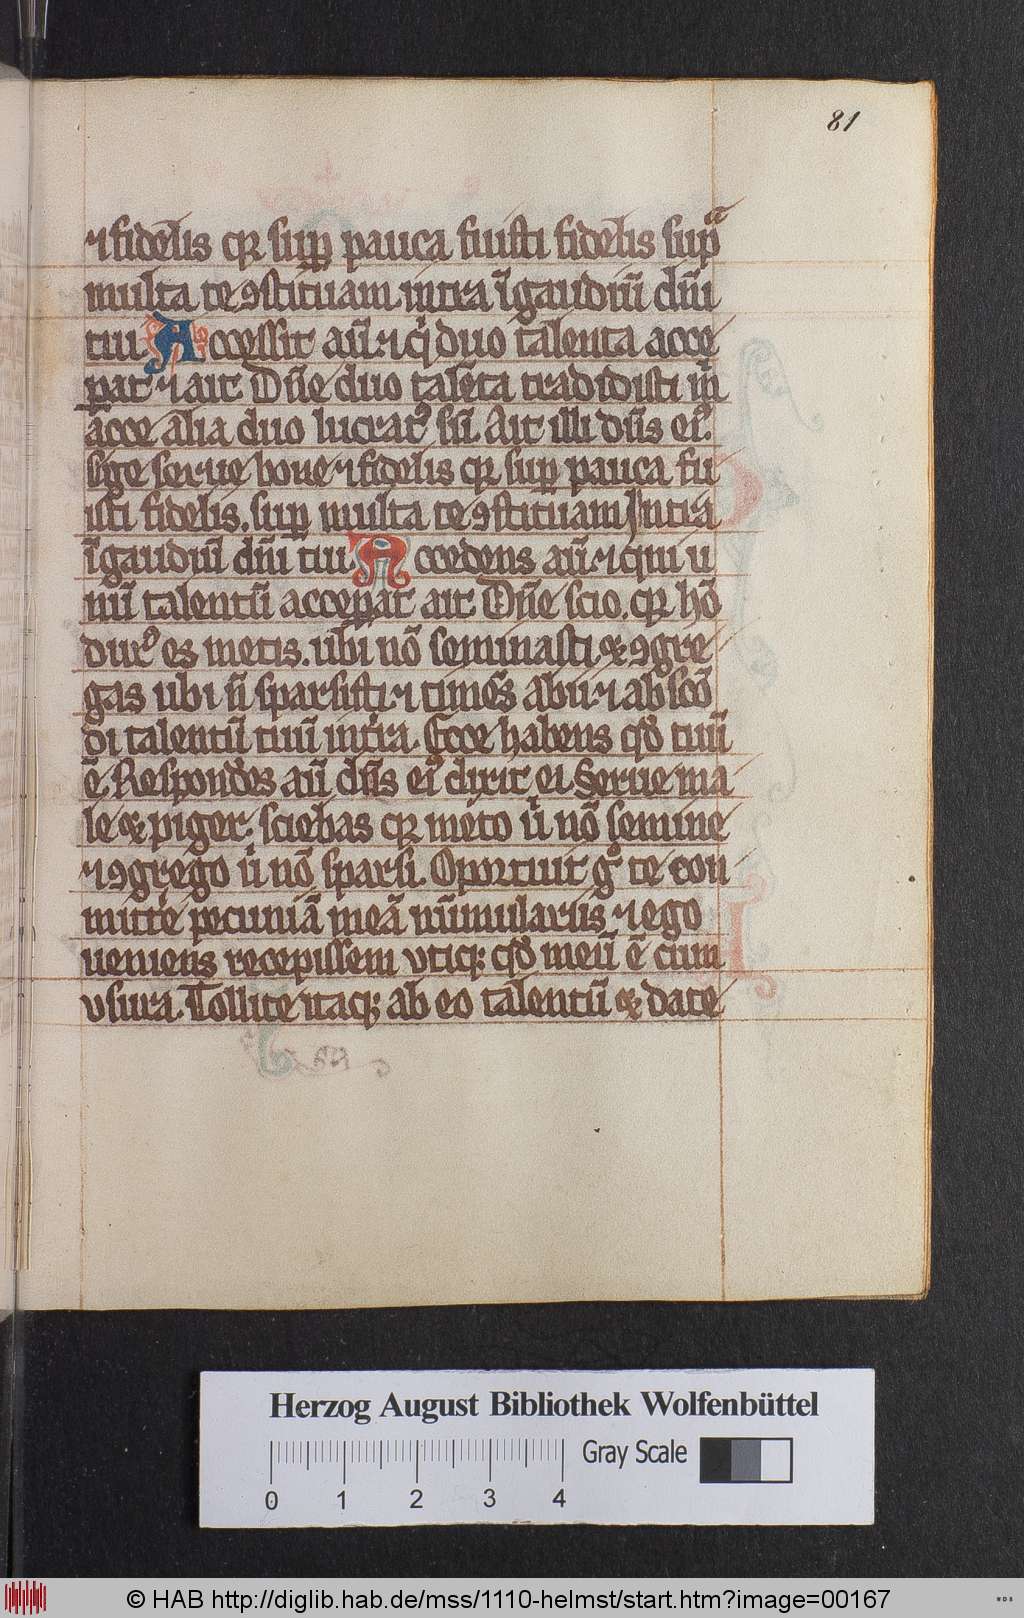 81
⁊ fidel̄is qꝛ suꝑ pauca fuisti fidelis supͣ
multa te ꝯstituam intra ī gaudiū dn̄i
tui Accessit aū ⁊ qͥ duo talenta acce
ꝑat ⁊ ait Dn̄e duo talēta tradidisti m̄
ecce alia duo lucratꝰ sū. Ait illi dn̄s eiꝰ.
Eige serue bone ⁊ fidelis qꝛ suꝑ pauca fu
isti fidelis. suꝑ multa te ꝯstituam Intra
ī gaudiū dn̄i tui Accedens aū ⁊ qui u
nū talentū acceꝑat ait Dn̄e scio. qꝛ hō
durꝰ es metis. ubi nō seminasti & ꝯgre
gas ubi n̄ sparsisti ⁊ timēs abii ⁊ abscō
di talentū tuū in tͥra. Ecce habens qd̄ tuū
ē. Respondēs aū dn̄s eiꝰ dixit ei Serue ma
le & piger. sciebas qꝛ meto uͥ nō semine
⁊ ꝯgrego uͥ nō sparsi. Oportuit gͦ te com
mitte᷒ pecuniā meā nūmulariis ⁊ ego
ueniens recepissem vtiqꝫ qd̄ meū ē cum
vsura. Tollite itaqꝫ ab eo talentū & date
Herzog August Bibliothek Wolfenbüttel
Gray Scale
0 1 2 3 4
© HAB http://diglib.hab.de/mss/1110-helmst/start.htm?image=00167